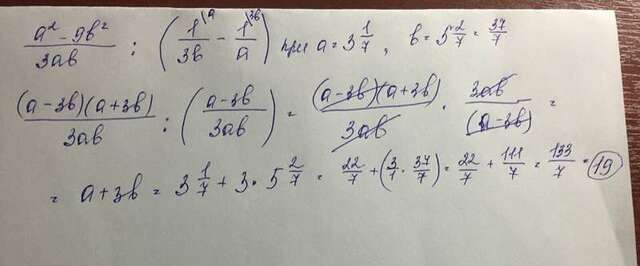 (a² - 9b²)/(3ab) : (1\a/(3b) - 1\3b/a) при a = 3 1/7, b = 5 2/7 = 37/7
((a-3b)(a+3b))/(3ab) : ((a-3b)/(3ab)) = ((a-3b)(a+3b))/(3ab) · (3ab)/((a-3b)) =
= a+3b = 3 1/7 + 3 · 5 2/7 = 22/7 + (3/1 · 37/7) = 22/7 + 111/7 = 133/7 = 19